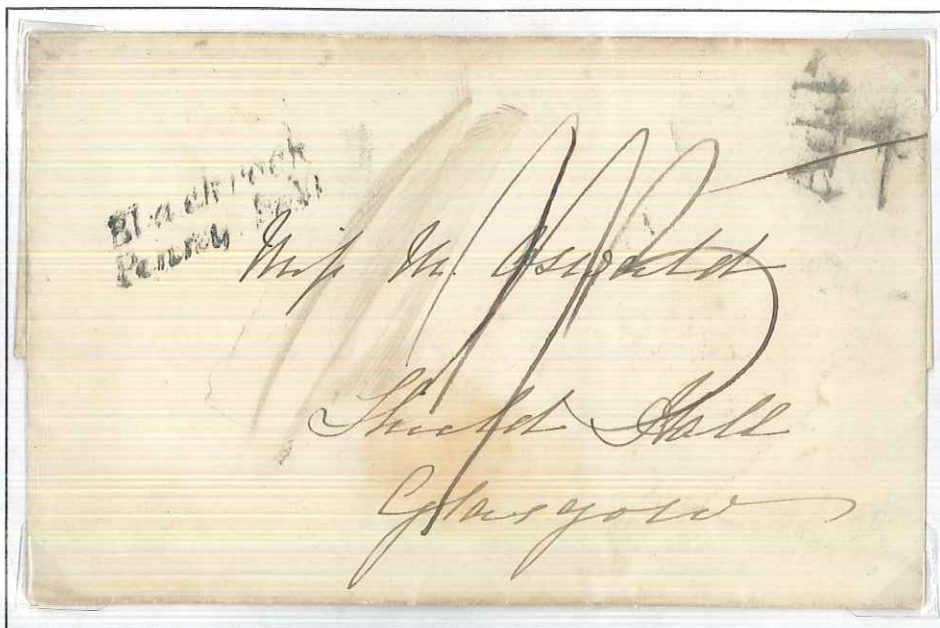 Blackrock
Penny Post
Miss M. Oswald
Shield Hall
Glasgow